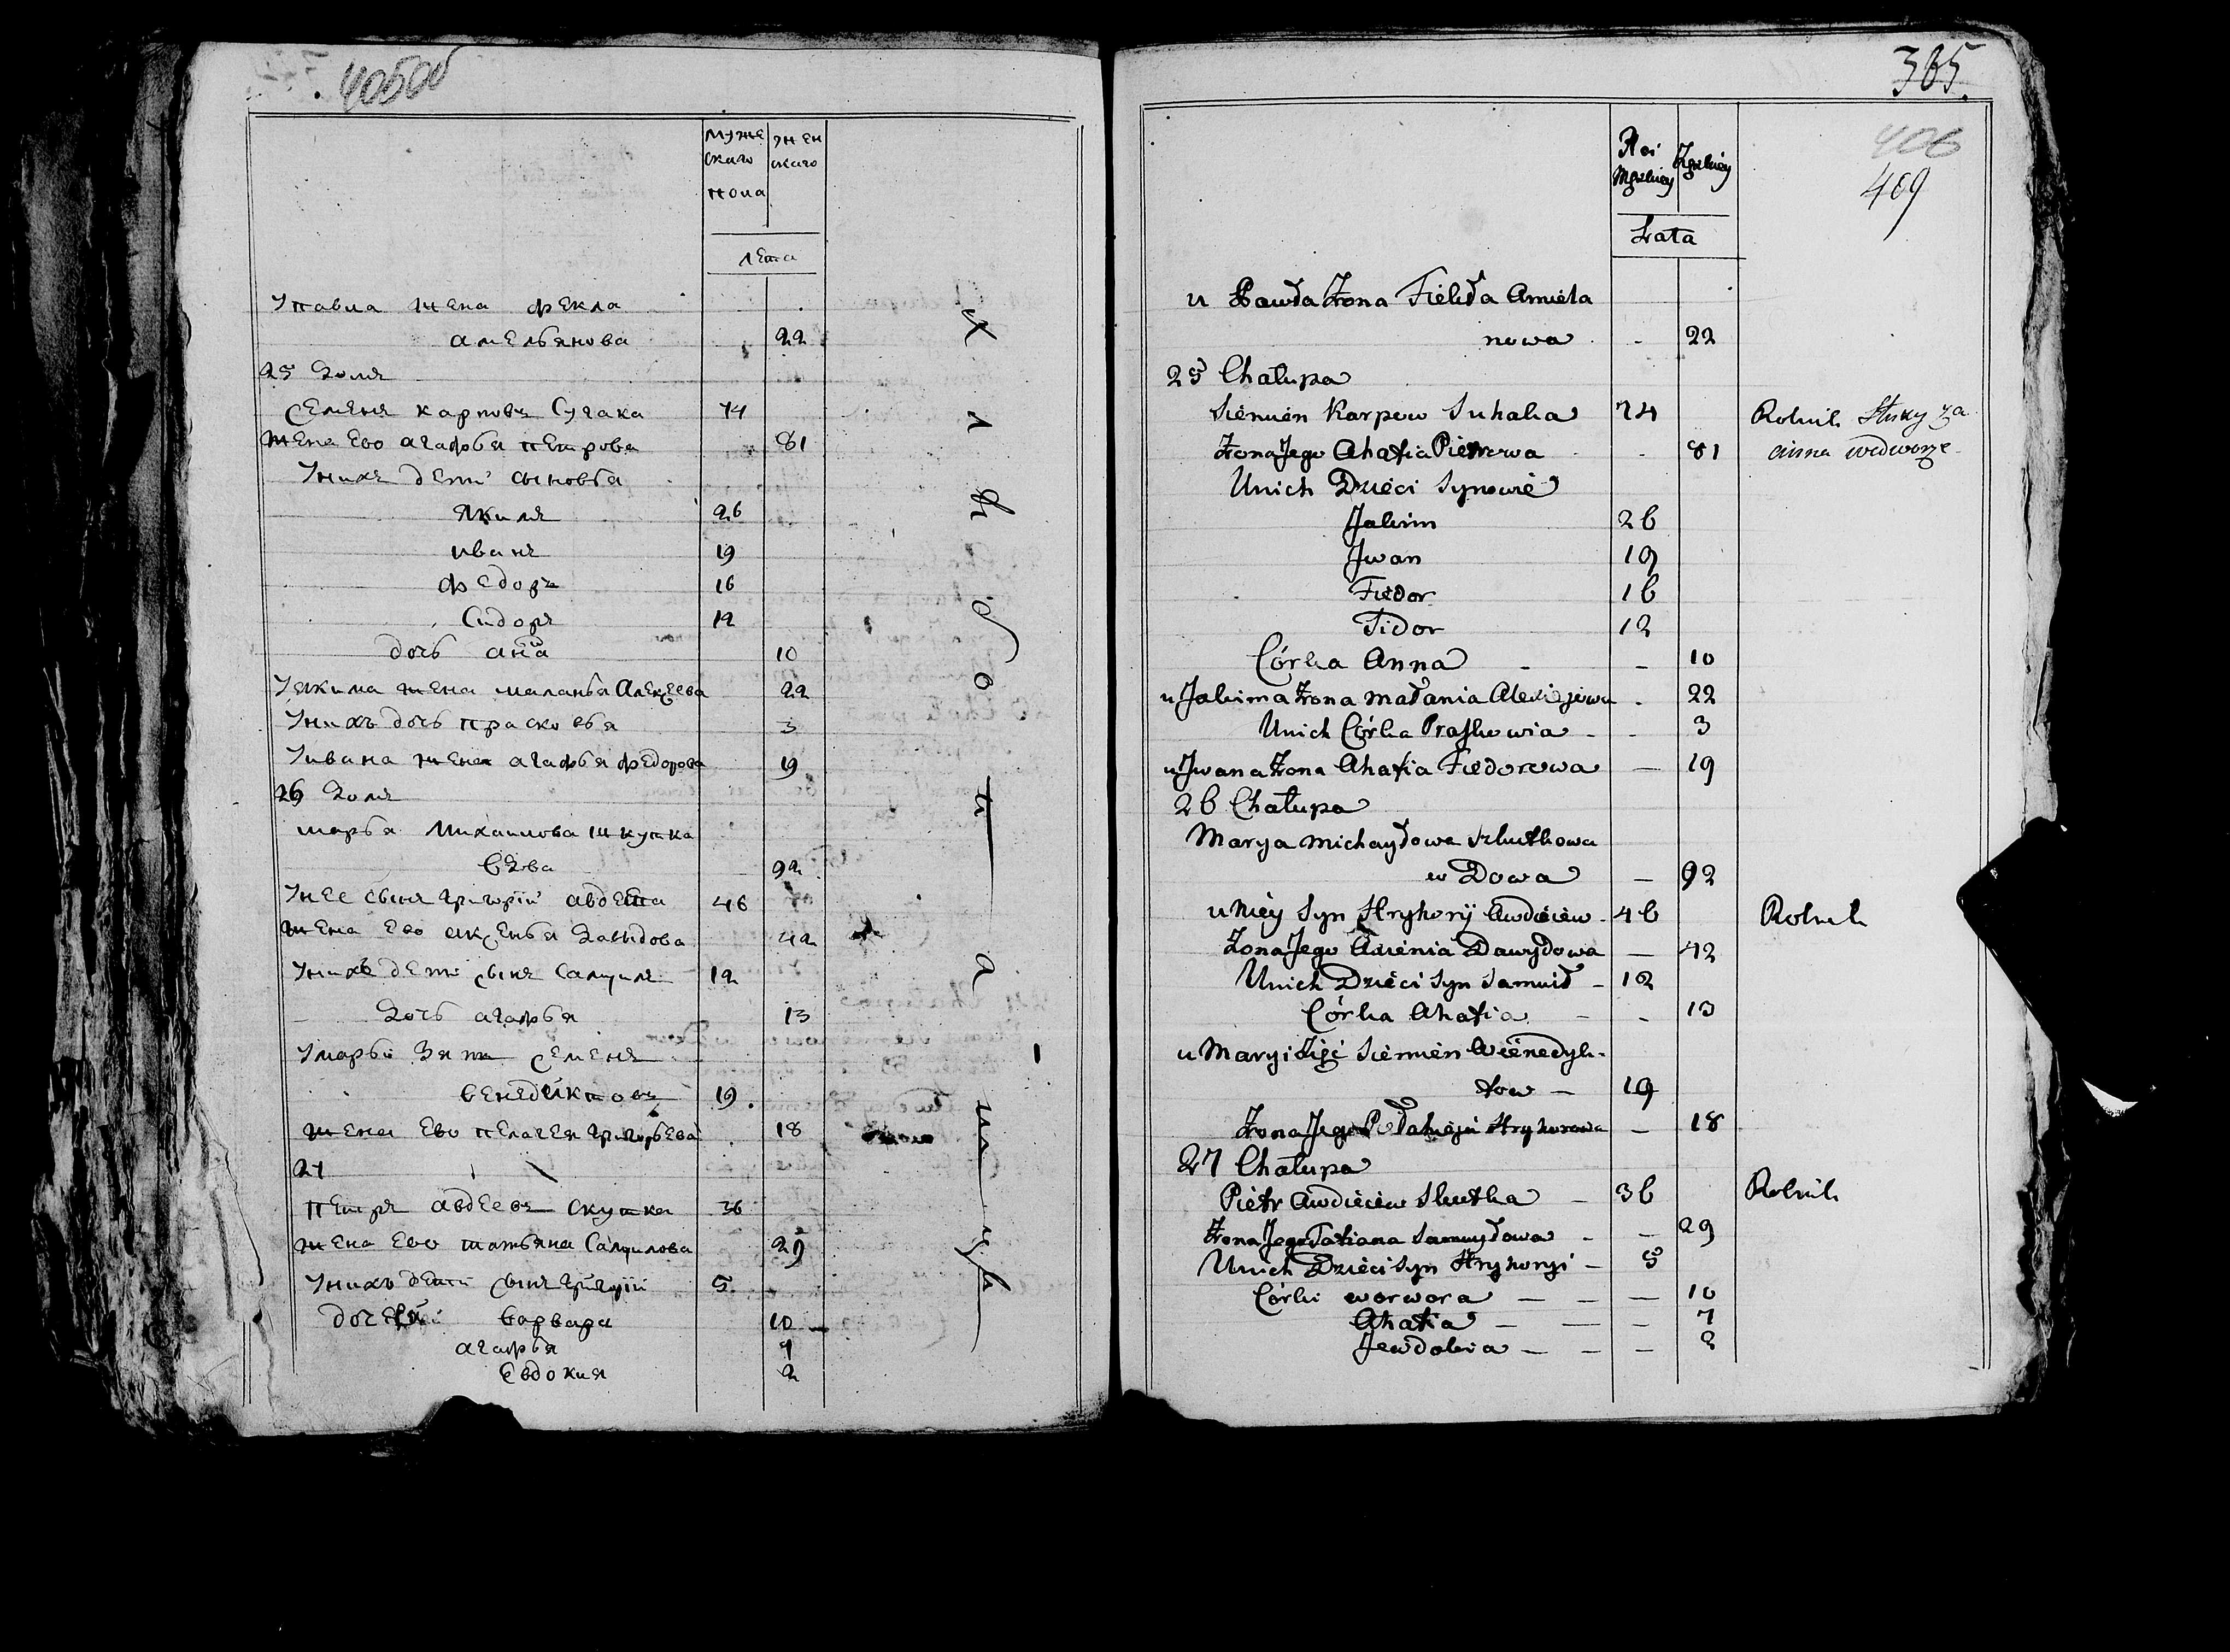 405об
муже
скаго
жен
скаго
пола
лета
Упавла жена фекла
амельянова 22
25 Домъ
Семенъ карповъ Сугака 74
жена Ево агафья петрова 81
Унихъ дети сыновья
Якимъ 26
иванъ 19
федоръ 16
Сидоръ 12
дочь анна 10
Уякима жена маланья Алексеева 22
Унихъ дочь прасковья 3
Уивана жена агафья федорова 19
26 Домъ
марья Михаилова шкутка
вдова 92
Унее сынъ григорiй авдеева 46
жена Ево аксенья Давыдова 42
Унихъ дети сынъ Самуилъ 12
Дочь агафья 13
Умарьи Зять Семенъ
венедиктовъ 19
жена Ево пелагея григорьева 18
27
петръ авдеевъ скутка 36
жена Ево татьяна Самуилова 29
Унихъ дети сынъ григорiй 5
дочери варвара 10
агафья 7
Евдокия 2
385.
406
409
Płci
Męzkiey
Żeńskiey
Lata
u Pawła Żona Fiekła Amiela
nowa - 22
25 Chałupa
Siemien Karpow Suhaka 74 Rolnik Służy za
Żona Jego Ahafia Pietrowa - 81
Unich Dzieci Synowie
Jakim 26
Jwan 19
Fiedor 16
Sidor 12
Córka Anna - - 10
u Jakima Żona Małania Alexiejewa - 22
Unich Córka Praskowia - - 3
u Jwana Żona Ahafia Fiedorowa - 19
26 Chałupa
Marya Michayłowa Szkutkowa
w Dowa - 92
u Niey Syn Hryhorij Awdieiew - 46 Rolnik
Żona Jego Axienia Dawydowa - 42
Unich Dzieci Syn Samuił - 12
Córka Ahafia - - 13
u Maryi Zięć Siemien Wienedyk-
tow - 19
Żona Jego Połahieja Hryhorowa - 18
27 Chałupa
Pietr Awdieiew Skutka - 36 Rolnik
Żona Jego Tatiana Samuyłowa - - 29
Unich Dzieci Syn Hryhoryi - 5
Córki Worwora - - - 10
Ahafia - - - 7
Jewdokia - - - 2